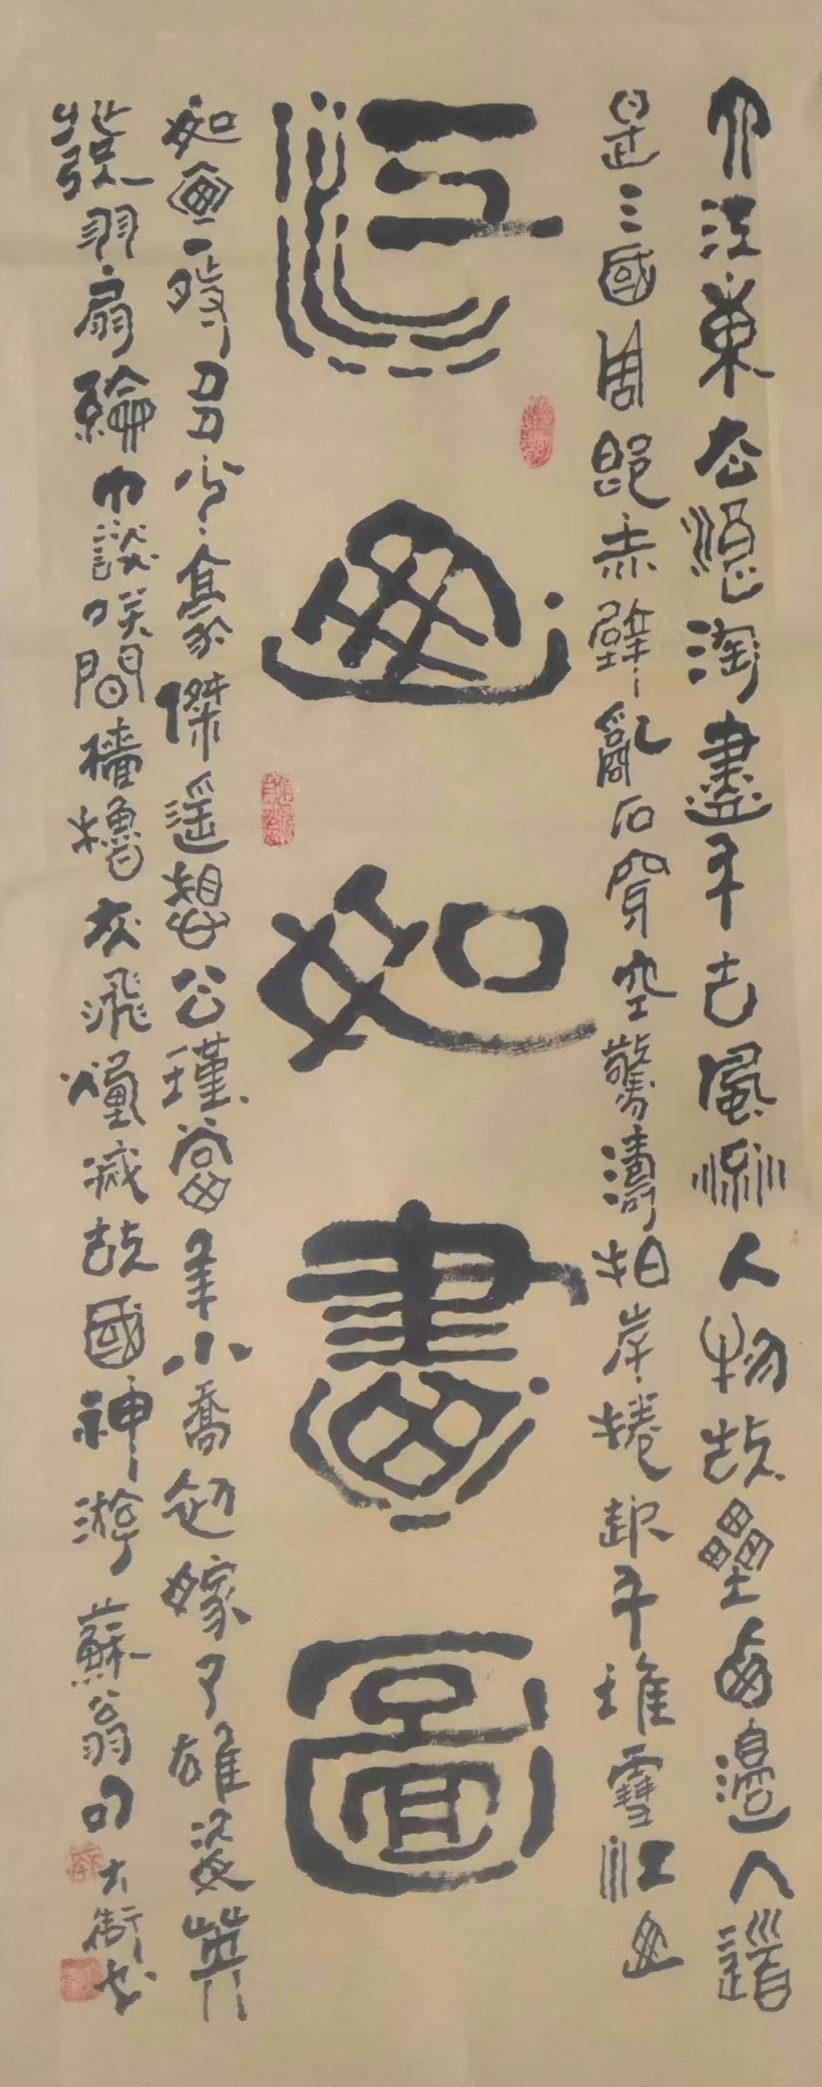 大江東去浪淘盡千古風流人物故壘西邊人道
是三國周郎赤壁亂石穿空驚濤拍岸捲起千堆雪江山
江山如畫圖
如畫一時多少豪傑遥想公瑾當年小喬初嫁了雄姿英
發羽扇綸巾談笑間檣櫓灰飛煙滅故國神游 蘇翁句 大衛书